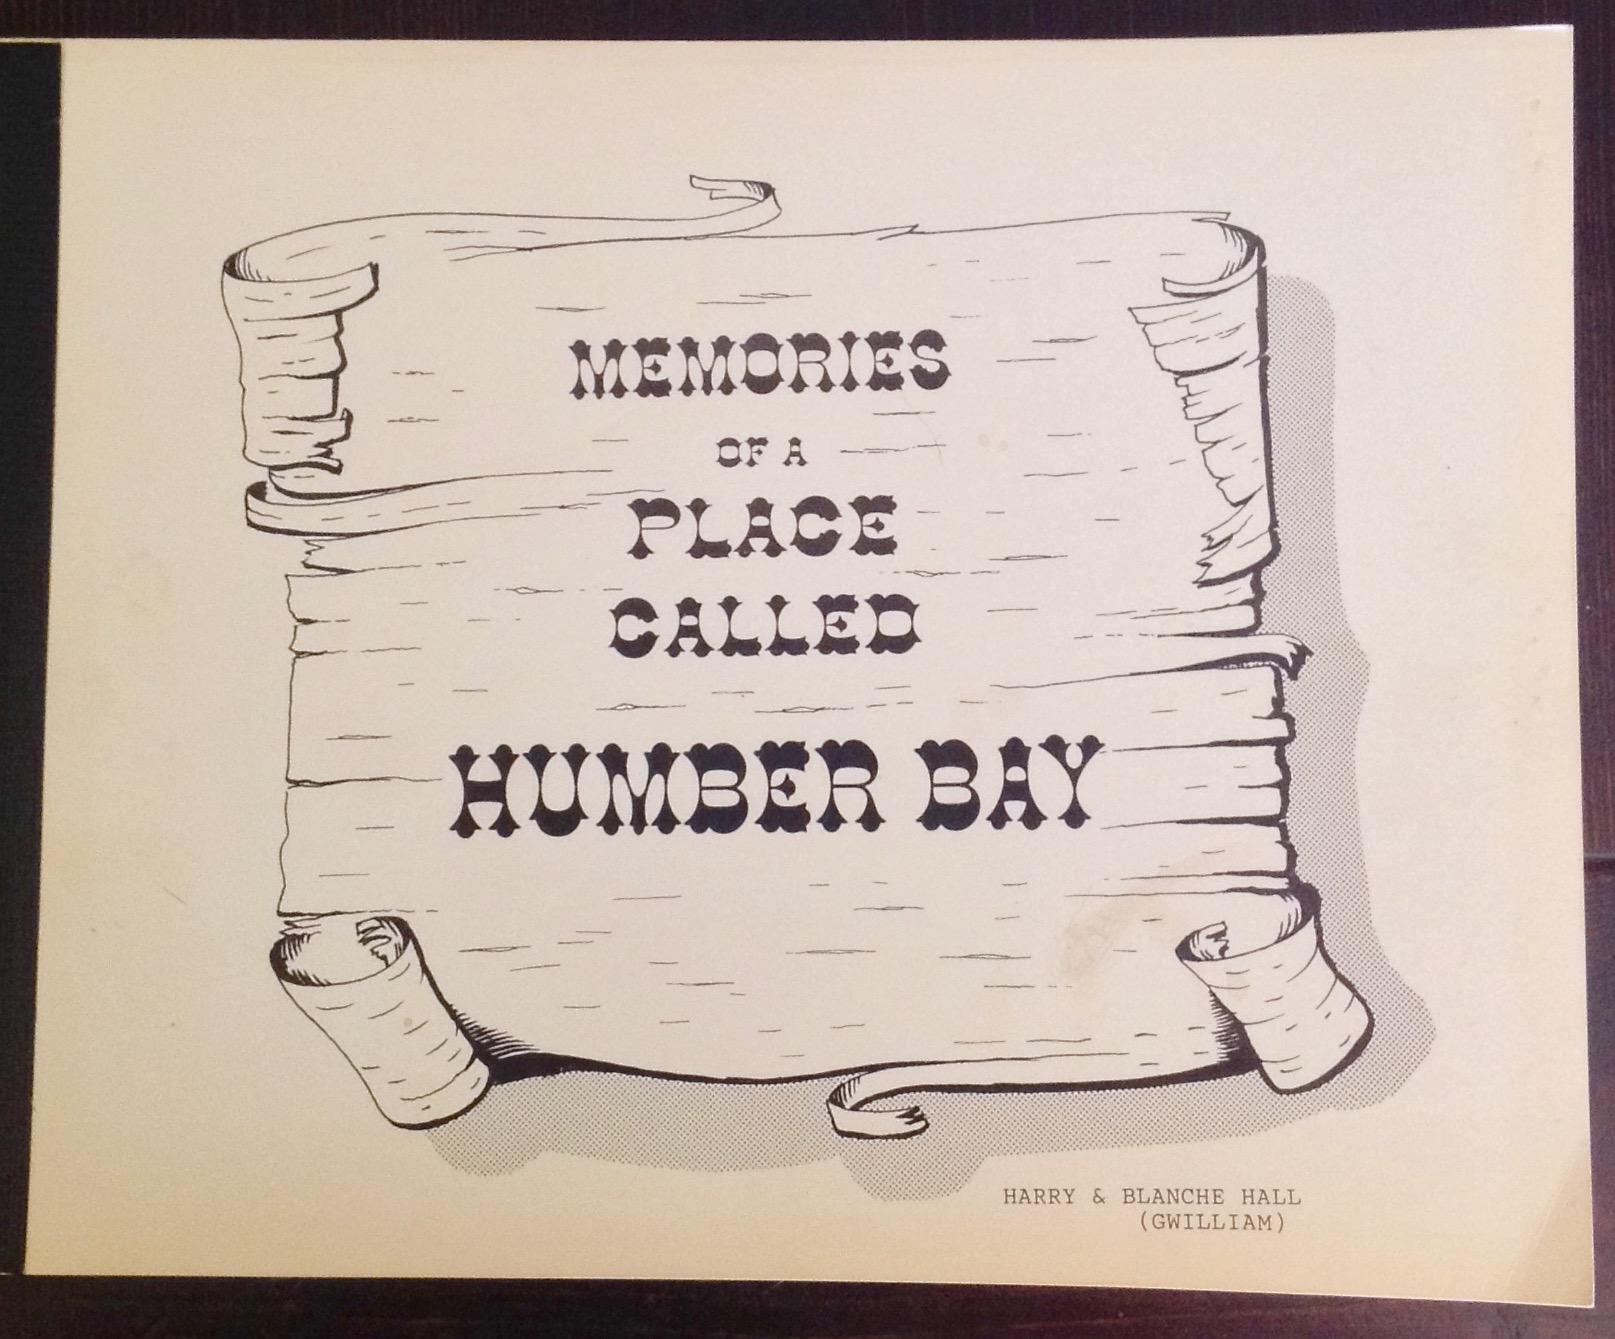 MEMORIES
OF A
PLACE
CALLED
HUMBER BAY
HARRY & BLANCHE HALL
(GWILLIAM)